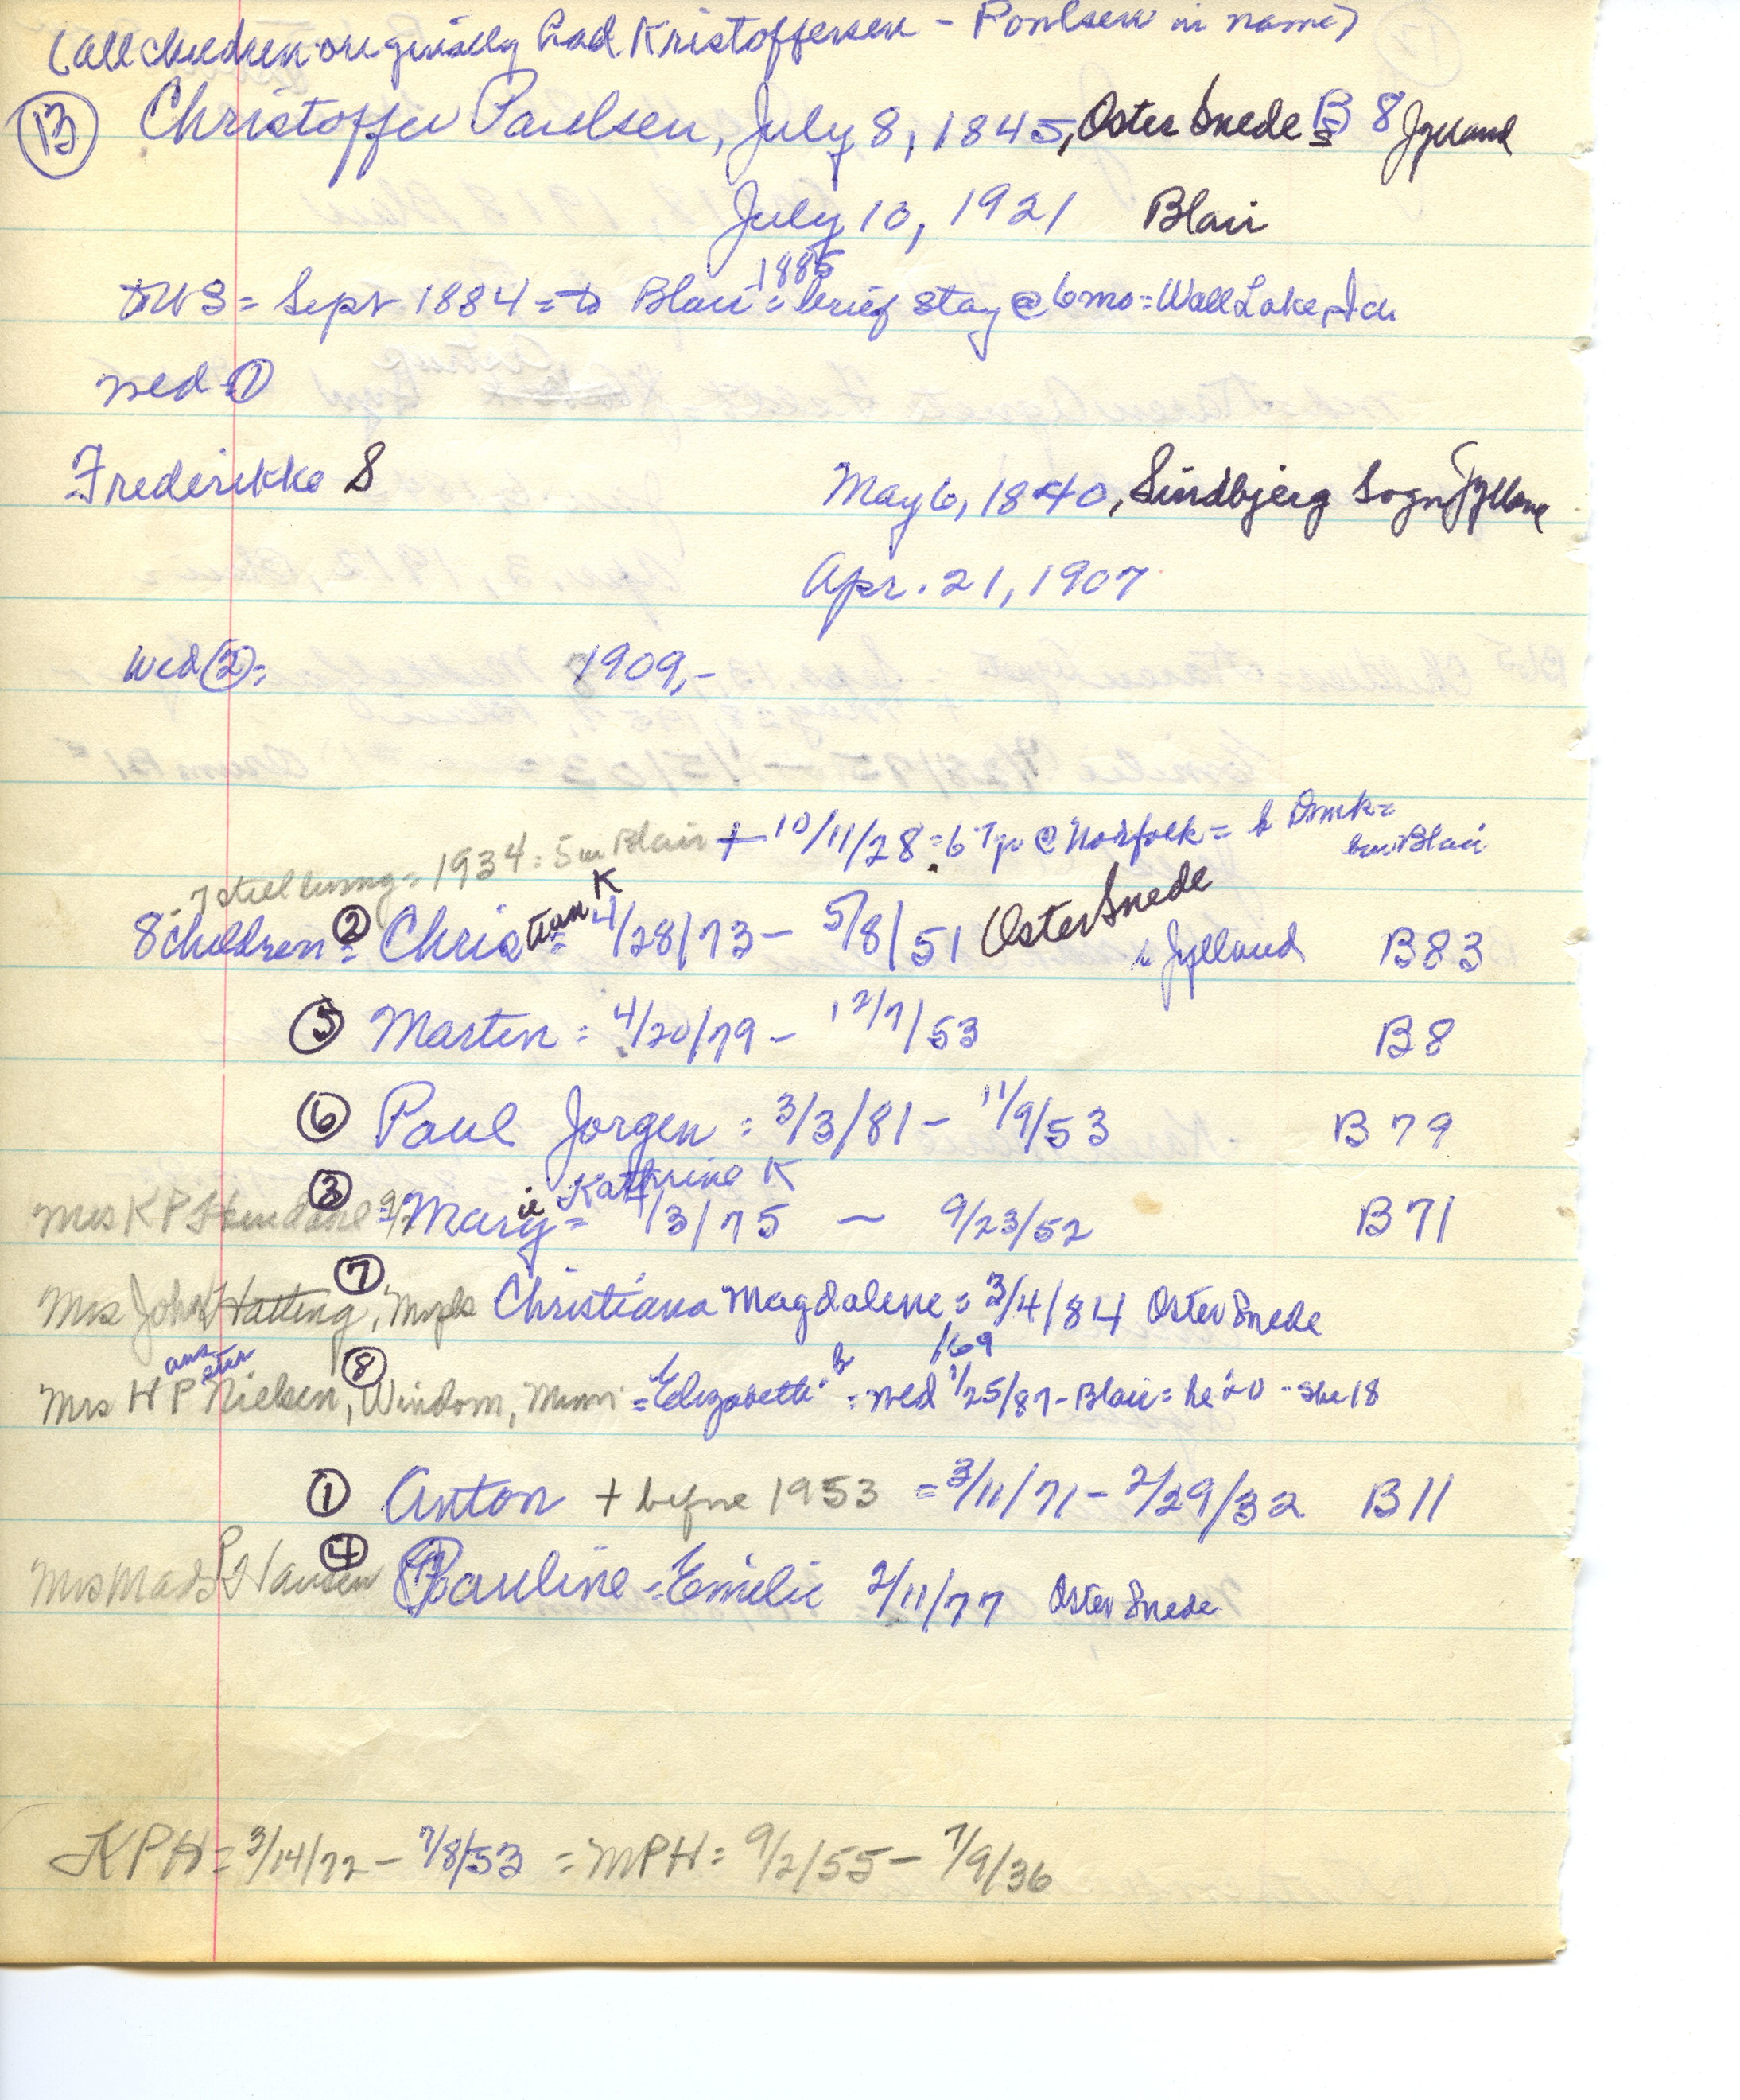 (all children originally had Kristoffersen - Poulsen in name)
(13) Christoffer Paulsen, July 8, 1845, Oster Snede B 8 Jylland
S
July 10, 1921 Blair
1885
to US = Sept 1884 = to Blair = brief stay @ 6 mo = Wall Lake, Ia
wed (1)
Frederikke S May 6, 1840, Sindbjerg Sogn Jylland
Apr. 21, 1907
wed (2) = 1909,-
7 still living = 1934: 5 in Blair + 10/11/28 = @ Norfolk = b Dnmk =
bur. Blair
8 children = (2) Christian K = 4/28/73 - 5/8/51 Oster Snede
Jylland B83
(5) Martin = 4/20/79 - 12/7/53 B8
(6) Paul Jorgen = 3/3/81 - 11/9/53 B 79
Kathrine K
Mrs K P (3) = Mary ie = 1/3/75 - 9/23/52 B 71
Mrs John Hatting, Mpls (7) Christiana Magdalene = 3/4/84 Oster Snede
ans ster 169
Mrs H P Nielsen, (8) Windom, Minn = Elizabeth = wed 1/25/87 - Blair = he 20 - she 18
(1) Anton + before 1953 = 3/11/71 - 2/29/32 B 11
Mrs Mads P Hansen (4) Pauline = Emilie 2/11/77 Oster Snede
KPH = 3/14/72 - 7/8/53 = MPH = 9/2/55 - 7/9/36